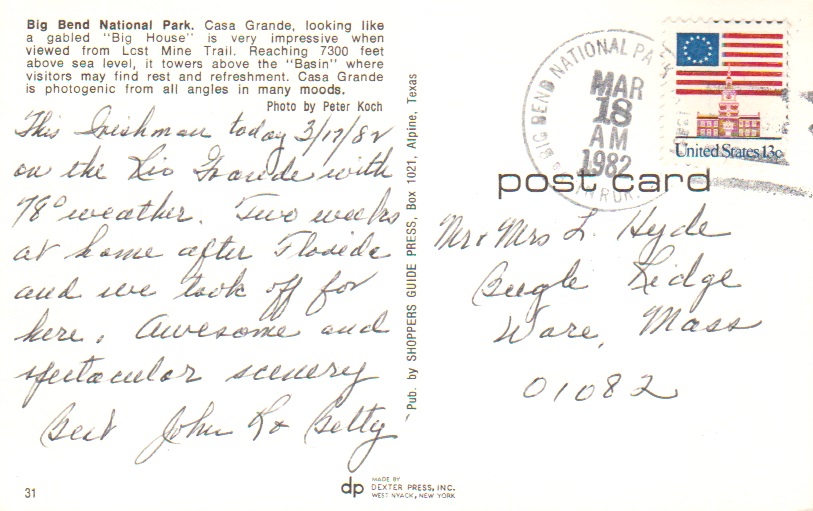 Big Bend National Park. Casa Grande, looking like
a gabled "Big House" is very impressive when
viewed from Lost Mine Trail. Reaching 7300 feet
above sea level, it towers above the "Basin" where
visitors may find rest and refreshment. Casa Grande
is photogenic from all angles in many moods.
Photo by Peter Koch
This Irishman today 3/17/82
on the Rio Grande with
78° weather. Two weeks
at home after Florida
and we took off for
here. Awesome and
spectacular scenery
Best John R & Betty
31
Pub. by SHOPPERS GUIDE PRESS, Box 1021, Alpine, Texas
dp
MADE BY
DEXTER PRESS, INC.
WEST NYACK, NEW YORK
BIG BEND NATIONAL PARK
MAR
18
AM
1982
United States 13c
post card
Mr & Mrs L. Hyde
Ridge
Ware, Mass
01082